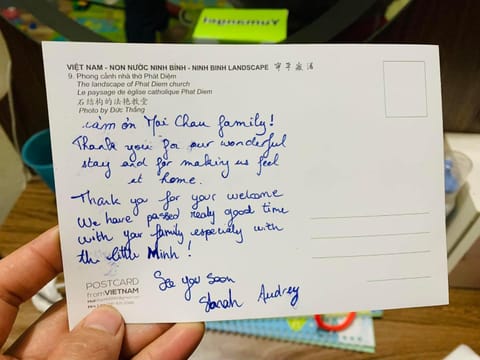 Yumangel
VIỆT NAM - NON NƯỚC NINH BÌNH - NINH BINH LANDSCAPE
9. Phong cảnh nhà thờ Phát Diệm
The landscape of Phat Diem church
Le paysage de église catholique Phat Diem
石结构的法艳教堂
Photo by Đức Thắng
Cảm ơn Mai Chau family!
Thank you for our wonderful
stay and for making us feel
at home.
Thank you for your welcome
We have passed really good time
with your family especially with
the little Minh!
See you soon
Sarah Audrey
POSTCARD
fromVIETNAM